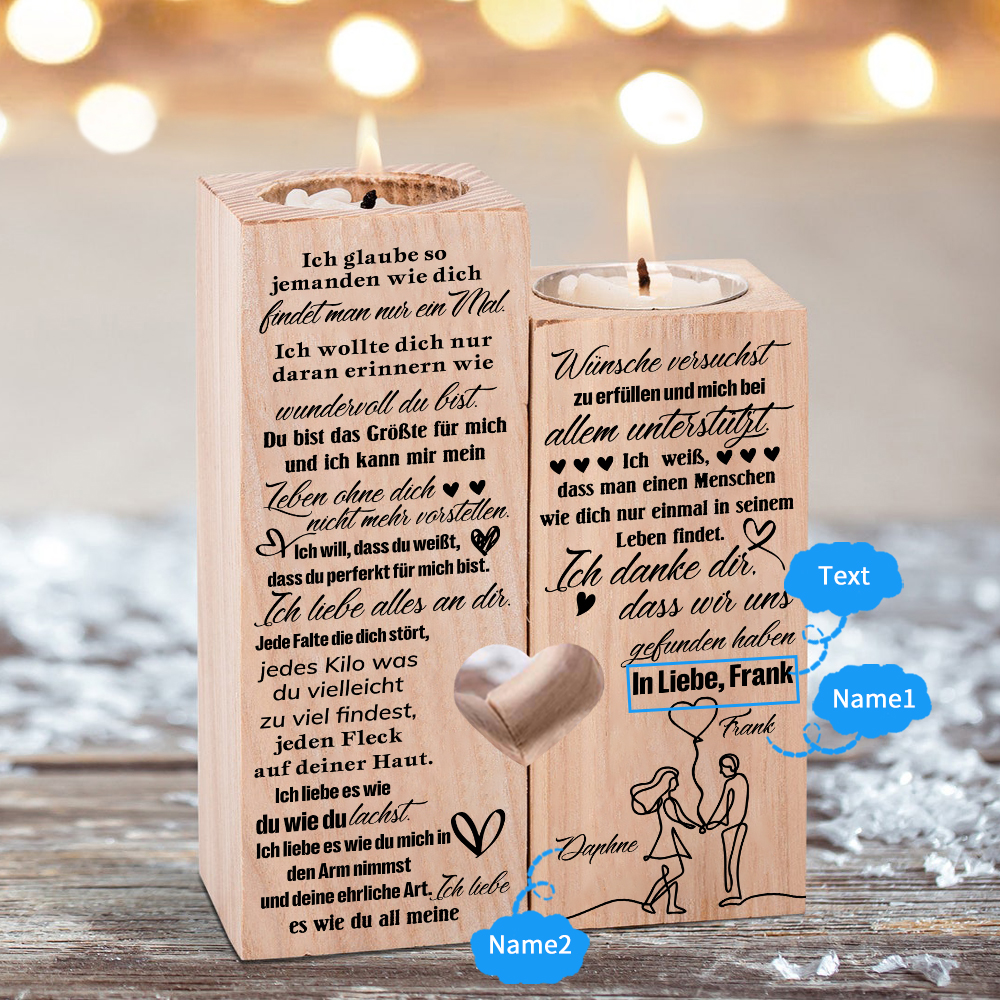 Ich glaube so
jemanden wie dich
findet man nur ein Mal.
Ich wollte dich nur
daran erinnern wie
wundervoll du bist.
Du bist das Größte für mich
und ich kann mir mein
Leben ohne dich
nicht mehr vorstellen.
Ich will, dass du weißt,
dass du perferkt für mich bist.
Ich liebe alles an dir.
Jede Falte die dich stört,
jedes Kilo was
du vielleicht
zu viel findest,
jeden Fleck
auf deiner Haut.
Ich liebe es wie
du wie du lachst.
Ich liebe es wie du mich in
den Arm nimmst
und deine ehrliche Art. Ich liebe
es wie du all meine
Wünsche versuchst
zu erfüllen und mich bei
allem unterstützt.
Ich weiß,
dass man einen Menschen
wie dich nur einmal in seinem
Leben findet.
Ich danke dir,
dass wir uns
gefunden haben
In Liebe, Frank
Frank
Daphne
Text
Name1
Name2